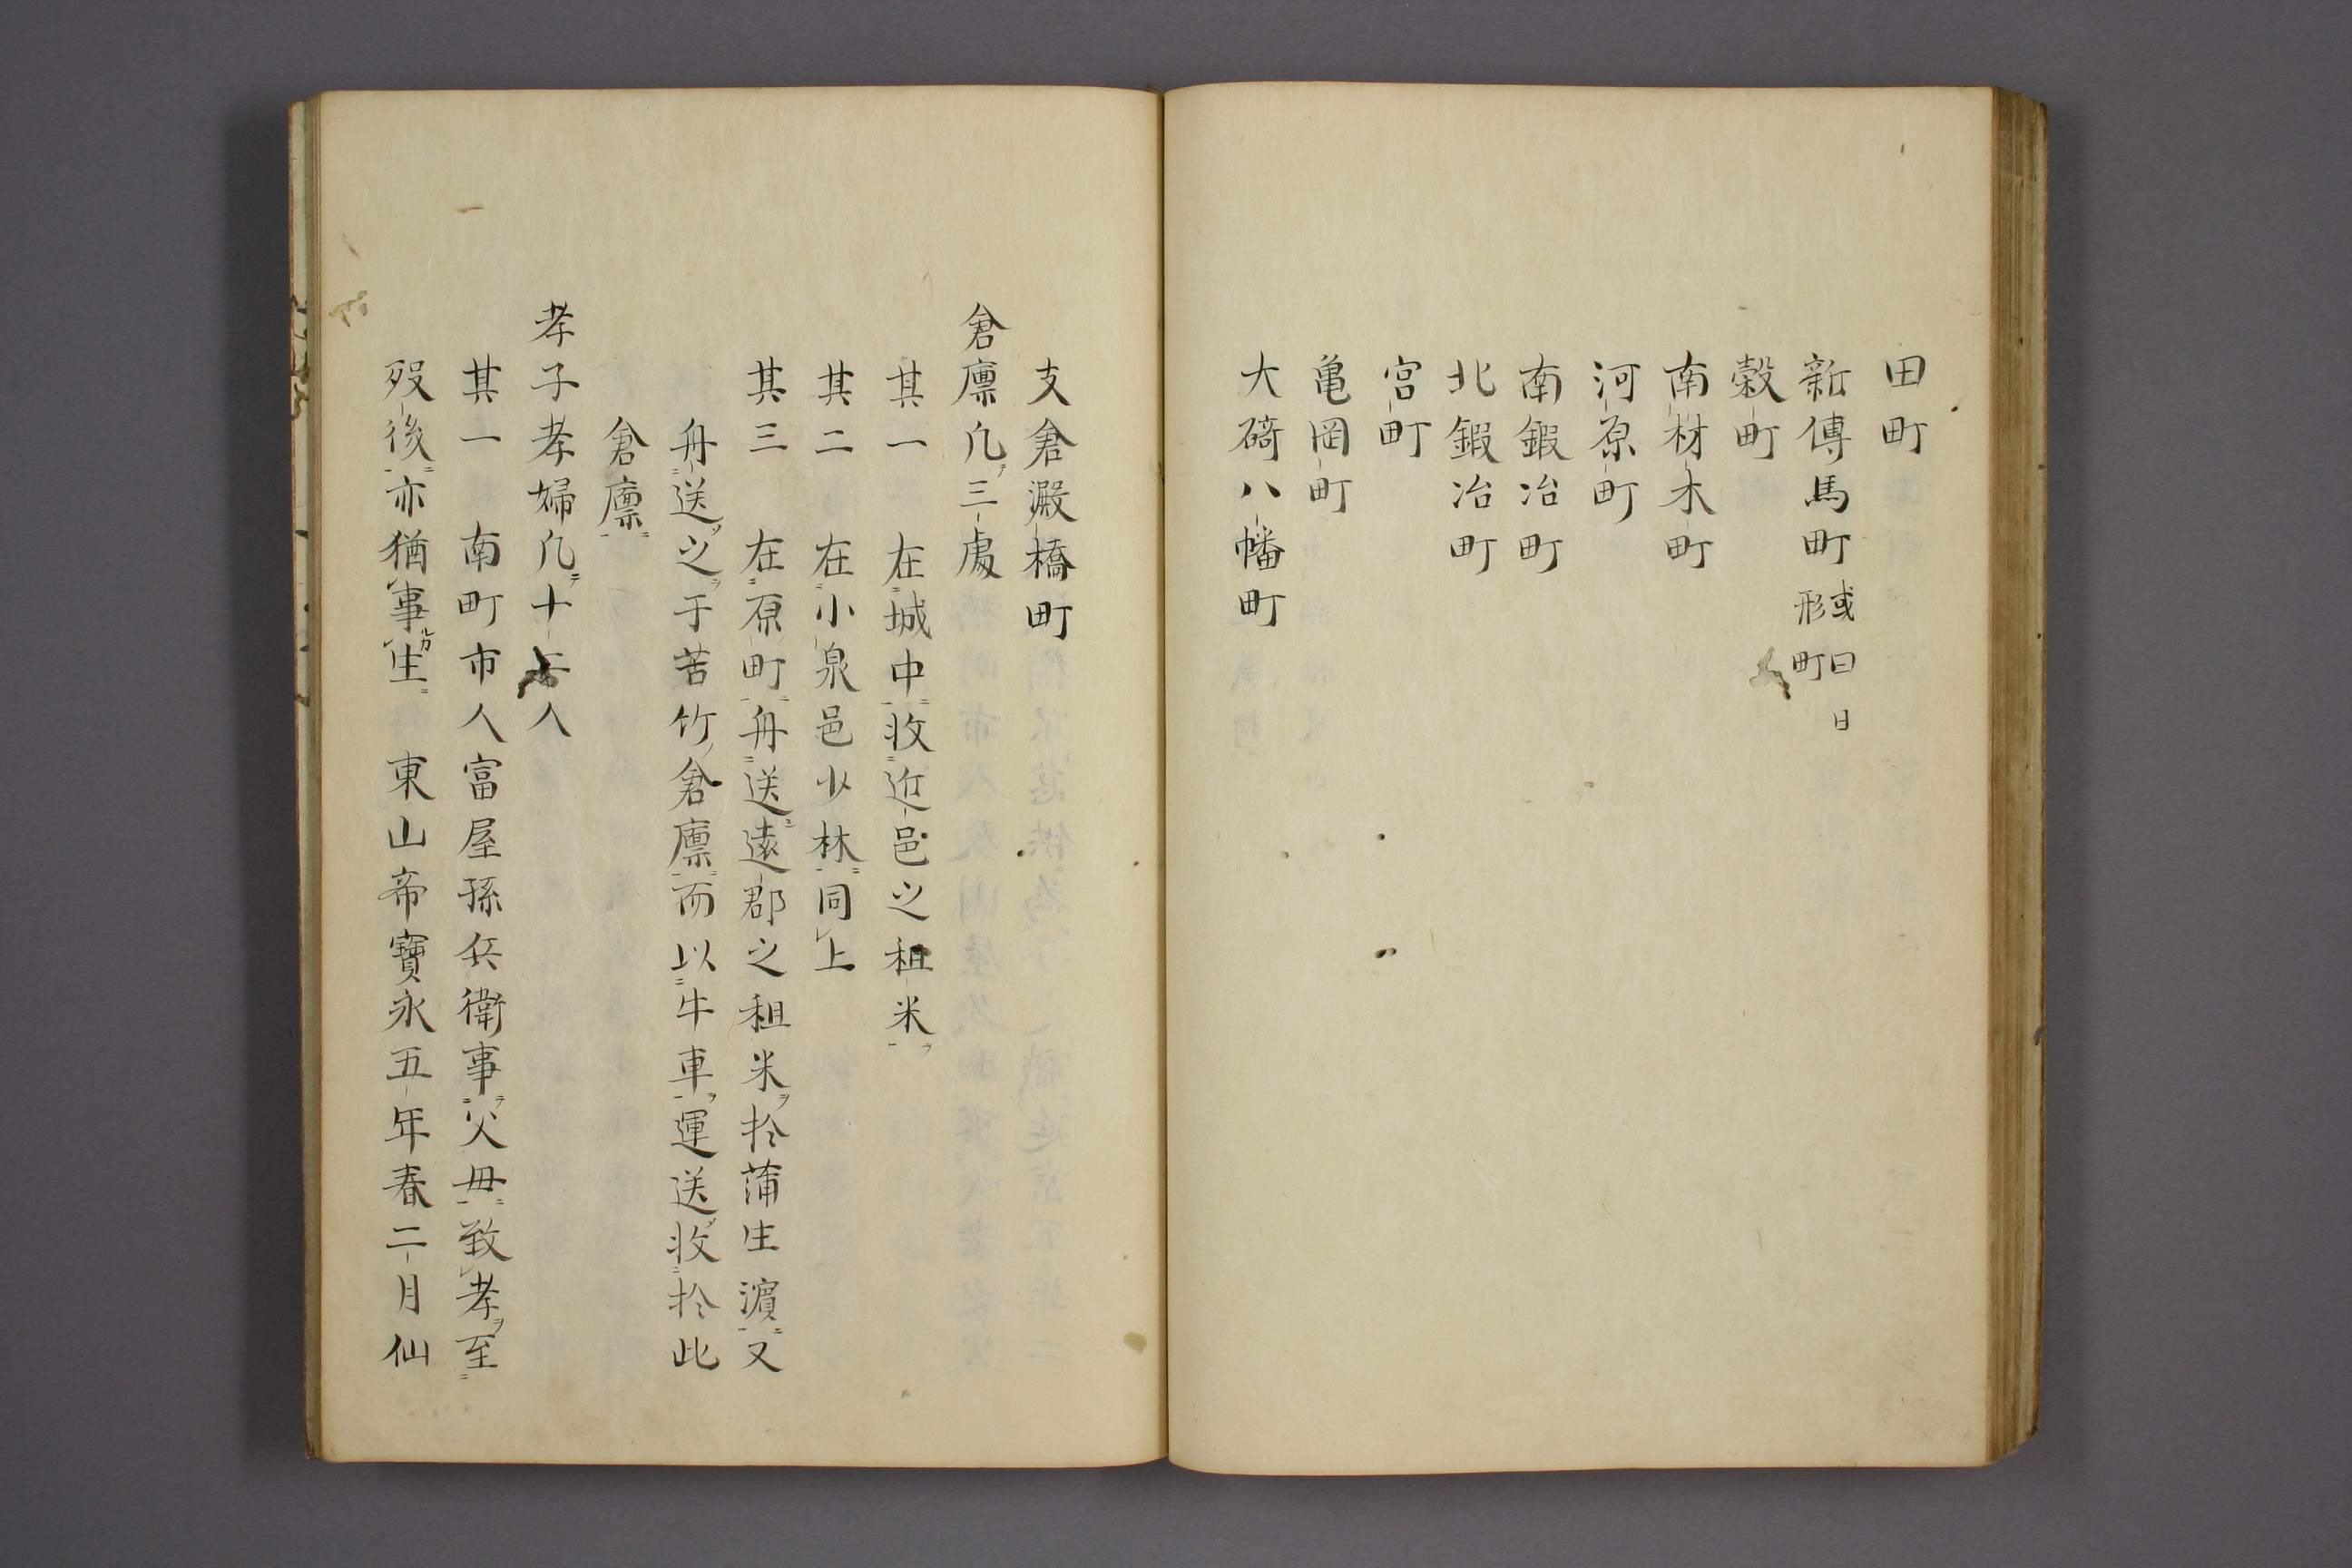 田町
新傳馬町 或曰日形町
穀町
南材木町
河原町
南鍜冶町
北鍜冶町
宮町
亀岡町
大﨑八幡町
支倉澱橋町
倉廩凢三處
其一 在城中收近邑之租米
其二 在小泉邑少林同上
其三 在原町舟送遠郡之租米扵蒲生濵又
舟送之于苦竹倉廩而以牛車運送收扵此
倉廩
孝子孝婦凢十人
其一 南町市人富屋孫兵衛事父母致孝至
歿後亦猶事生 東山帝寶永五年春二月仙